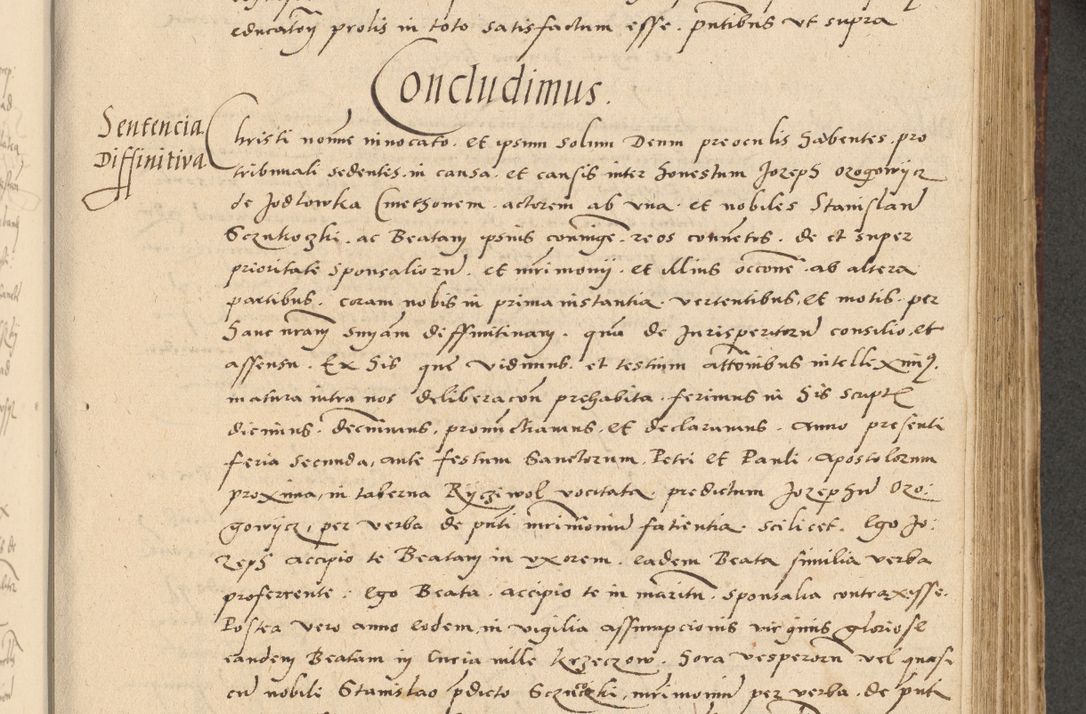 educatōnj prolis in toto satisfactum esse. pntibus vt supra
Concludimus.
Sentencia
Diffinitiva
Christi noīne innocato. et ipsum solum Deum preoculis habentes. pro
tribunali sedentes. in causa. et causis inter honestum Jozeph Ozogowijcz
de Jodlowka Cmethonem. actorem ab vna. et nobiles Stanislaū
Sczutkoczki. ac Beatam ipsius coniūgē. reos conuētos. de et super
prioritate sponsaliorū. et mr̄imonij. et illius occōne. ab altera
partibus. coram nobis in prima instantia. vertentibus, et motis. per
hanc nr̄am snīam diffinitiuam. quā de Jurisperitorū consilio, et
assensu. Ex his que vidimus. et testium attōnibus intelleximꝰ.
matura intra nos deliberacōn prehabita. ferimus in his scriptꝭ
dicimus. decernimus, pronūctiamus, et declaramus. Anno presenti
feria secunda, ante festum Sanctorum, Petri et Pauli, Apostolorum
proxima, in taberna Rycziwol vocitata. predictum Jozephū Ozo:
gowycz, per verba de pn̄ti mr̄imoniū fatientia. scilicet. Ego Jo:
zeph accipio te Beatam in vxorem. eadem Beata similia verba
proferrente: Ego Beata. accipio te in maritū. sponsalia contraxisse.
Postea vero anno eodem, in vigilia assumpcionis virginis gloriose
eandem Beatam in Curia ville Krzeczow. hora vesperorū vel quasi
cū nobile Stanislao p̄dicto Sczuczki, mr̄imoniū per verba. de pn̄ti